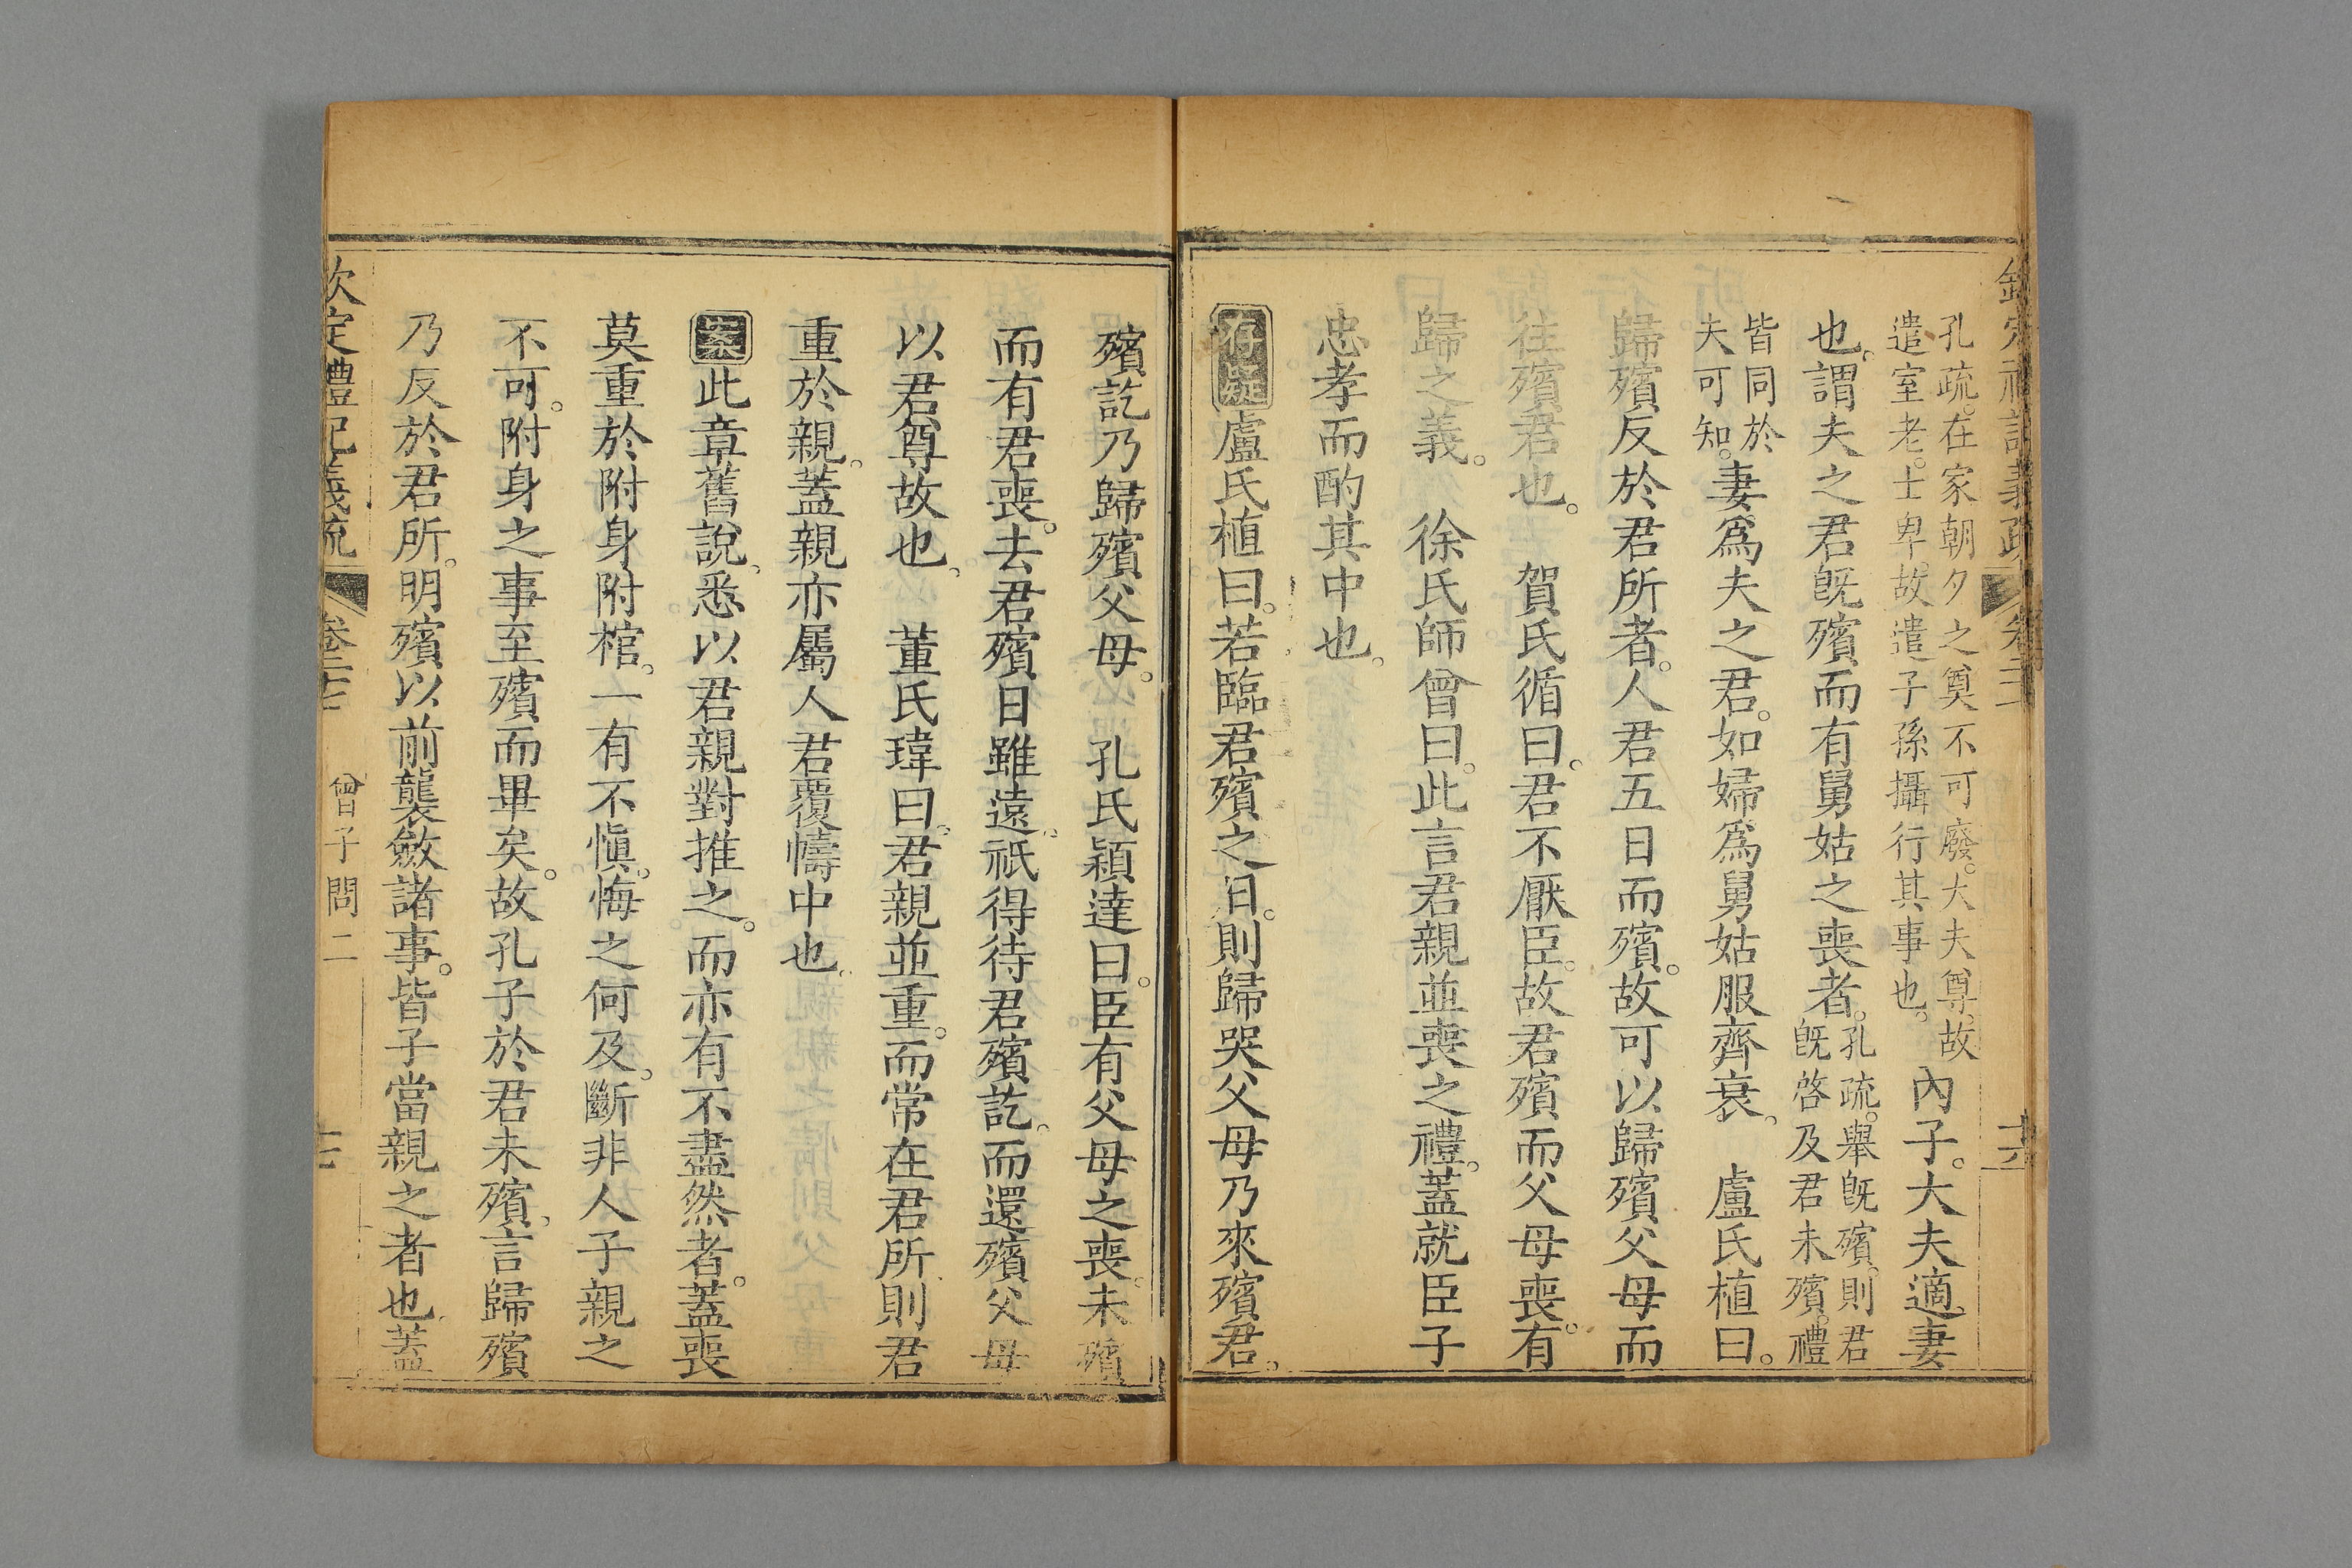 欽定禮記義疏 卷二十七 十六
孔疏。在家朝夕之奠不可廢。大夫尊。故
遣室老。士卑。故遣子孫攝行其事也。
內子。大夫適妻
也。謂夫之君旣殯而有舅姑之喪者。
孔疏。舉旣殯。則君
旣啓及君未殯。禮
皆同於
夫可知。
妻爲夫之君。如婦爲舅姑服齊衰。　盧氏植曰。
歸殯反於君所者。人君五日而殯。故可以歸殯父母而
往殯君也。　賀氏循曰。君不厭臣。故君殯而父母喪。有
歸之義。　徐氏師曾曰。此言君親並喪之禮。蓋就臣子
忠孝而酌其中也。
存疑盧氏植曰。若臨君殯之日。則歸哭父母乃來殯君。
殯訖乃歸殯父母。　孔氏穎達曰。臣有父母之喪。未殯
而有君喪。去君殯日雖遠。祇得待君殯訖。而還殯父母
以君尊故也。　董氏瑋曰。君親並重。而常在君所則君
重於親。蓋親亦屬人君覆幬中也。
案此章舊說。悉以君親對推之。而亦有不盡然者。蓋喪
莫重於附身附棺。一有不愼。悔之何及。斷非人子親之
不可。附身之事至殯而畢矣。故孔子於君未殯。言歸殯
乃反於君所。明殯以前襲斂諸事。皆子當親之者也。蓋
欽定禮記義疏 卷二十七 曾子問二 十七